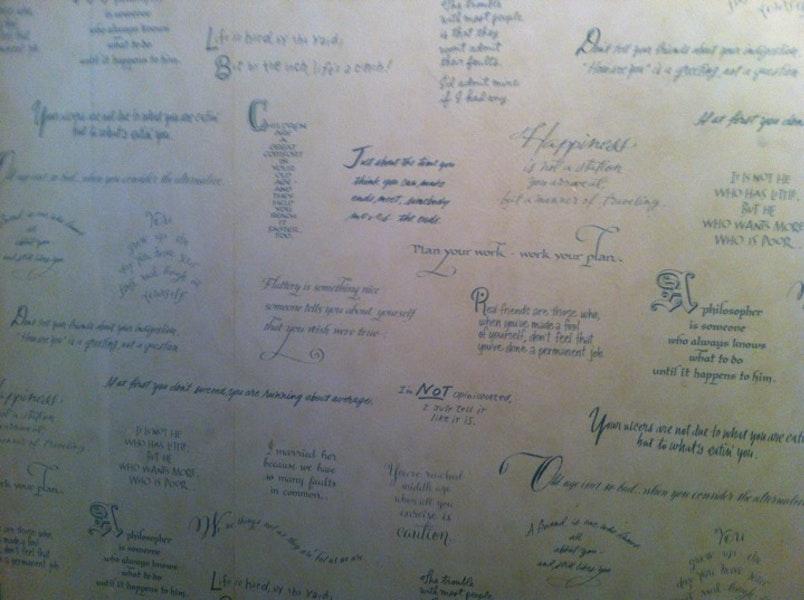 is someone
who always known
what to do
until it happens to him.
Life is hard, by the yard;
But by the inch, life's a cinch!
The trouble
with most people
is that they
won't admit
their faults.
I'd admit mine
if I had any.
Don't tell your friends about your indigestion,
"How are you" is a greeting, not a question
Your ulcers are not due to what you are eatin'
but to what's eatin' you.
CHILDREN
ARE
A
GREAT
COMFORT
IN
YOUR
OLD
AGE
AND
THEY
HELP
YOU
REACH
IT
FASTER
TOO.
Just about the time you
think you can make
ends meet, somebody
moves the ends.
Happiness
is not a station
you arrive at,
but a manner of traveling.
If at first you don
IT IS NOT HE
WHO HAS LITTLE,
BUT HE
WHO WANTS MORE
WHO IS POOR.
age isn't so bad.. when you consider the alternative.
is one who knows
all
about you
and still likes you
You
grow up the
day you have your
first real laugh at
yourself
Plan your work - work your plan.
Flattery is something nice
someone tells you about yourself
that you wish were true.
Real friends are those who,
when you've made a fool
of yourself, don't feel that
you've done a permanent job.
A philosopher
is someone
who always knows
what to do
until it happens to him.
Don't tell your friends about your indigestion,
"How are you" is a greeting, not a question
If at first you don't succeed, you are running about average.
I'm NOT opinionated,
I just tell it
like it is.
Your ulcers are not due to what you are eatin
but to what's eatin' you.
appiness
is not a station
arrive at,
manner of traveling
IT IS NOT HE
WHO HAS LITTLE,
BUT HE
WHO WANTS MORE
WHO IS POOR.
I married her
because we have
so many faults
in common...
You've reached
middle age
when all you
exercise is
caution.
Old age isn't so bad.. when you consider the alternative
rk your plan.
are those who,
made a fool
don't feel that
a permanent job
A philosopher
is someone
who always knows
what to do
until it happens to him.
We see things not as they are but as we are.
A friend is one who knows
all
about you
and still likes you
You
grow up the
day you have your
first real laugh at
Life is hard, by the yard;
The trouble
with most people